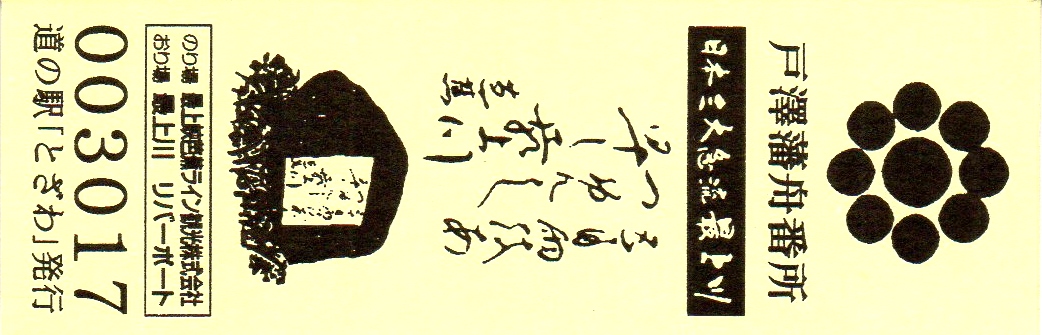 戸澤藩舟番所
日本三大急流最上川
最上川
のり場 最上峡芭蕉ライン観光株式会社
おり場 最上川 リバーポート
003017
道の駅「とざわ」発行